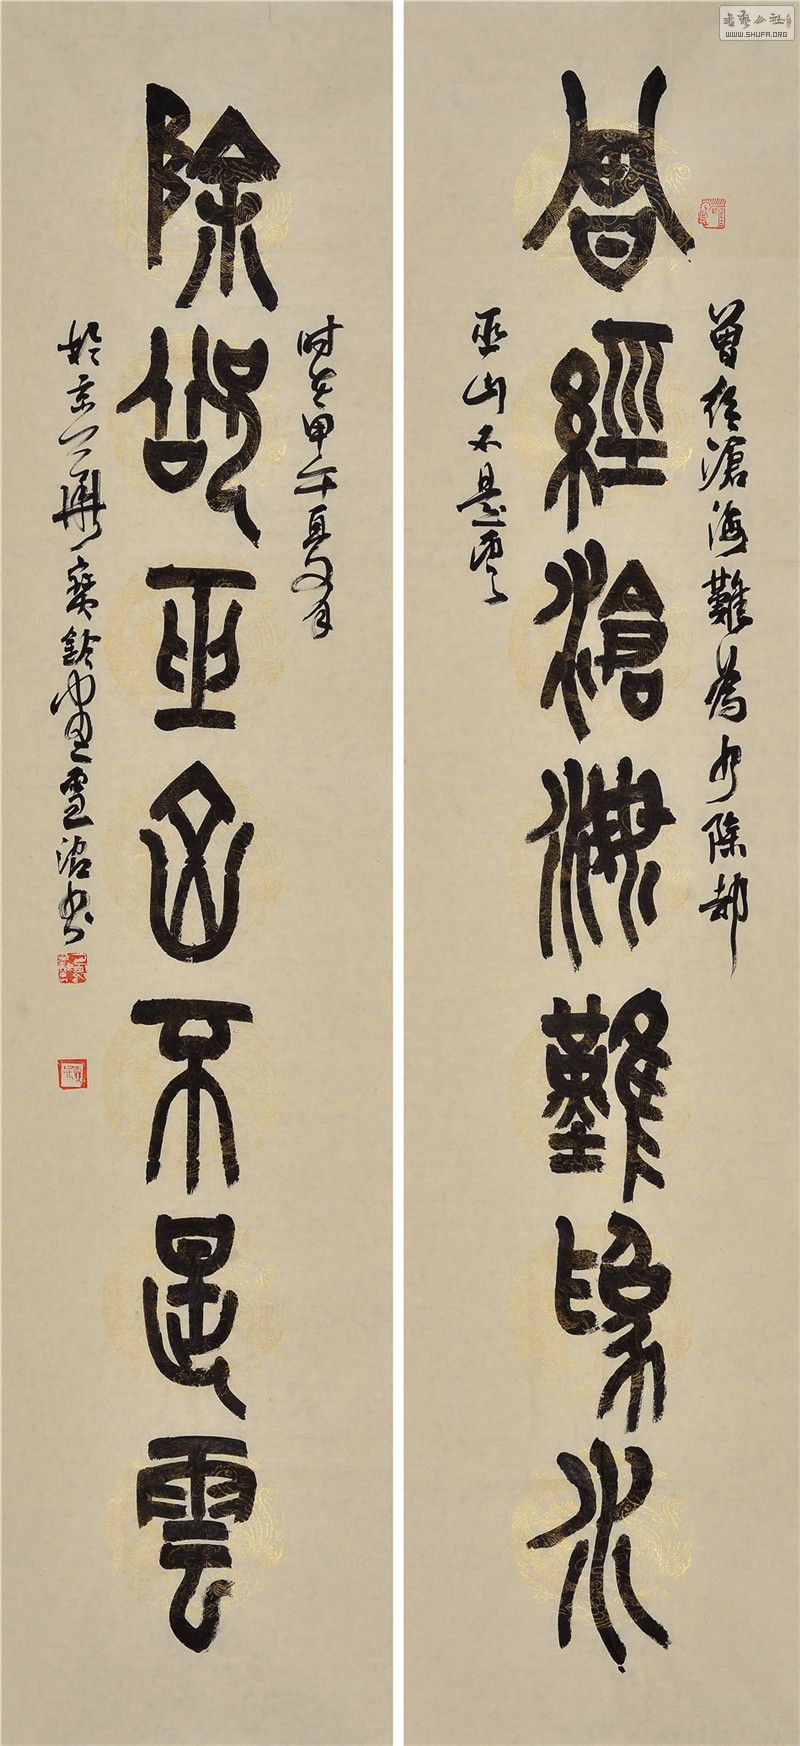 曾經滄海難為水
曾經滄海難為水除却
巫山不是雲
除却巫山不是雲
時在甲午夏月
於京
雪沿書
書藝公社
WWW.SHUFA.ORG